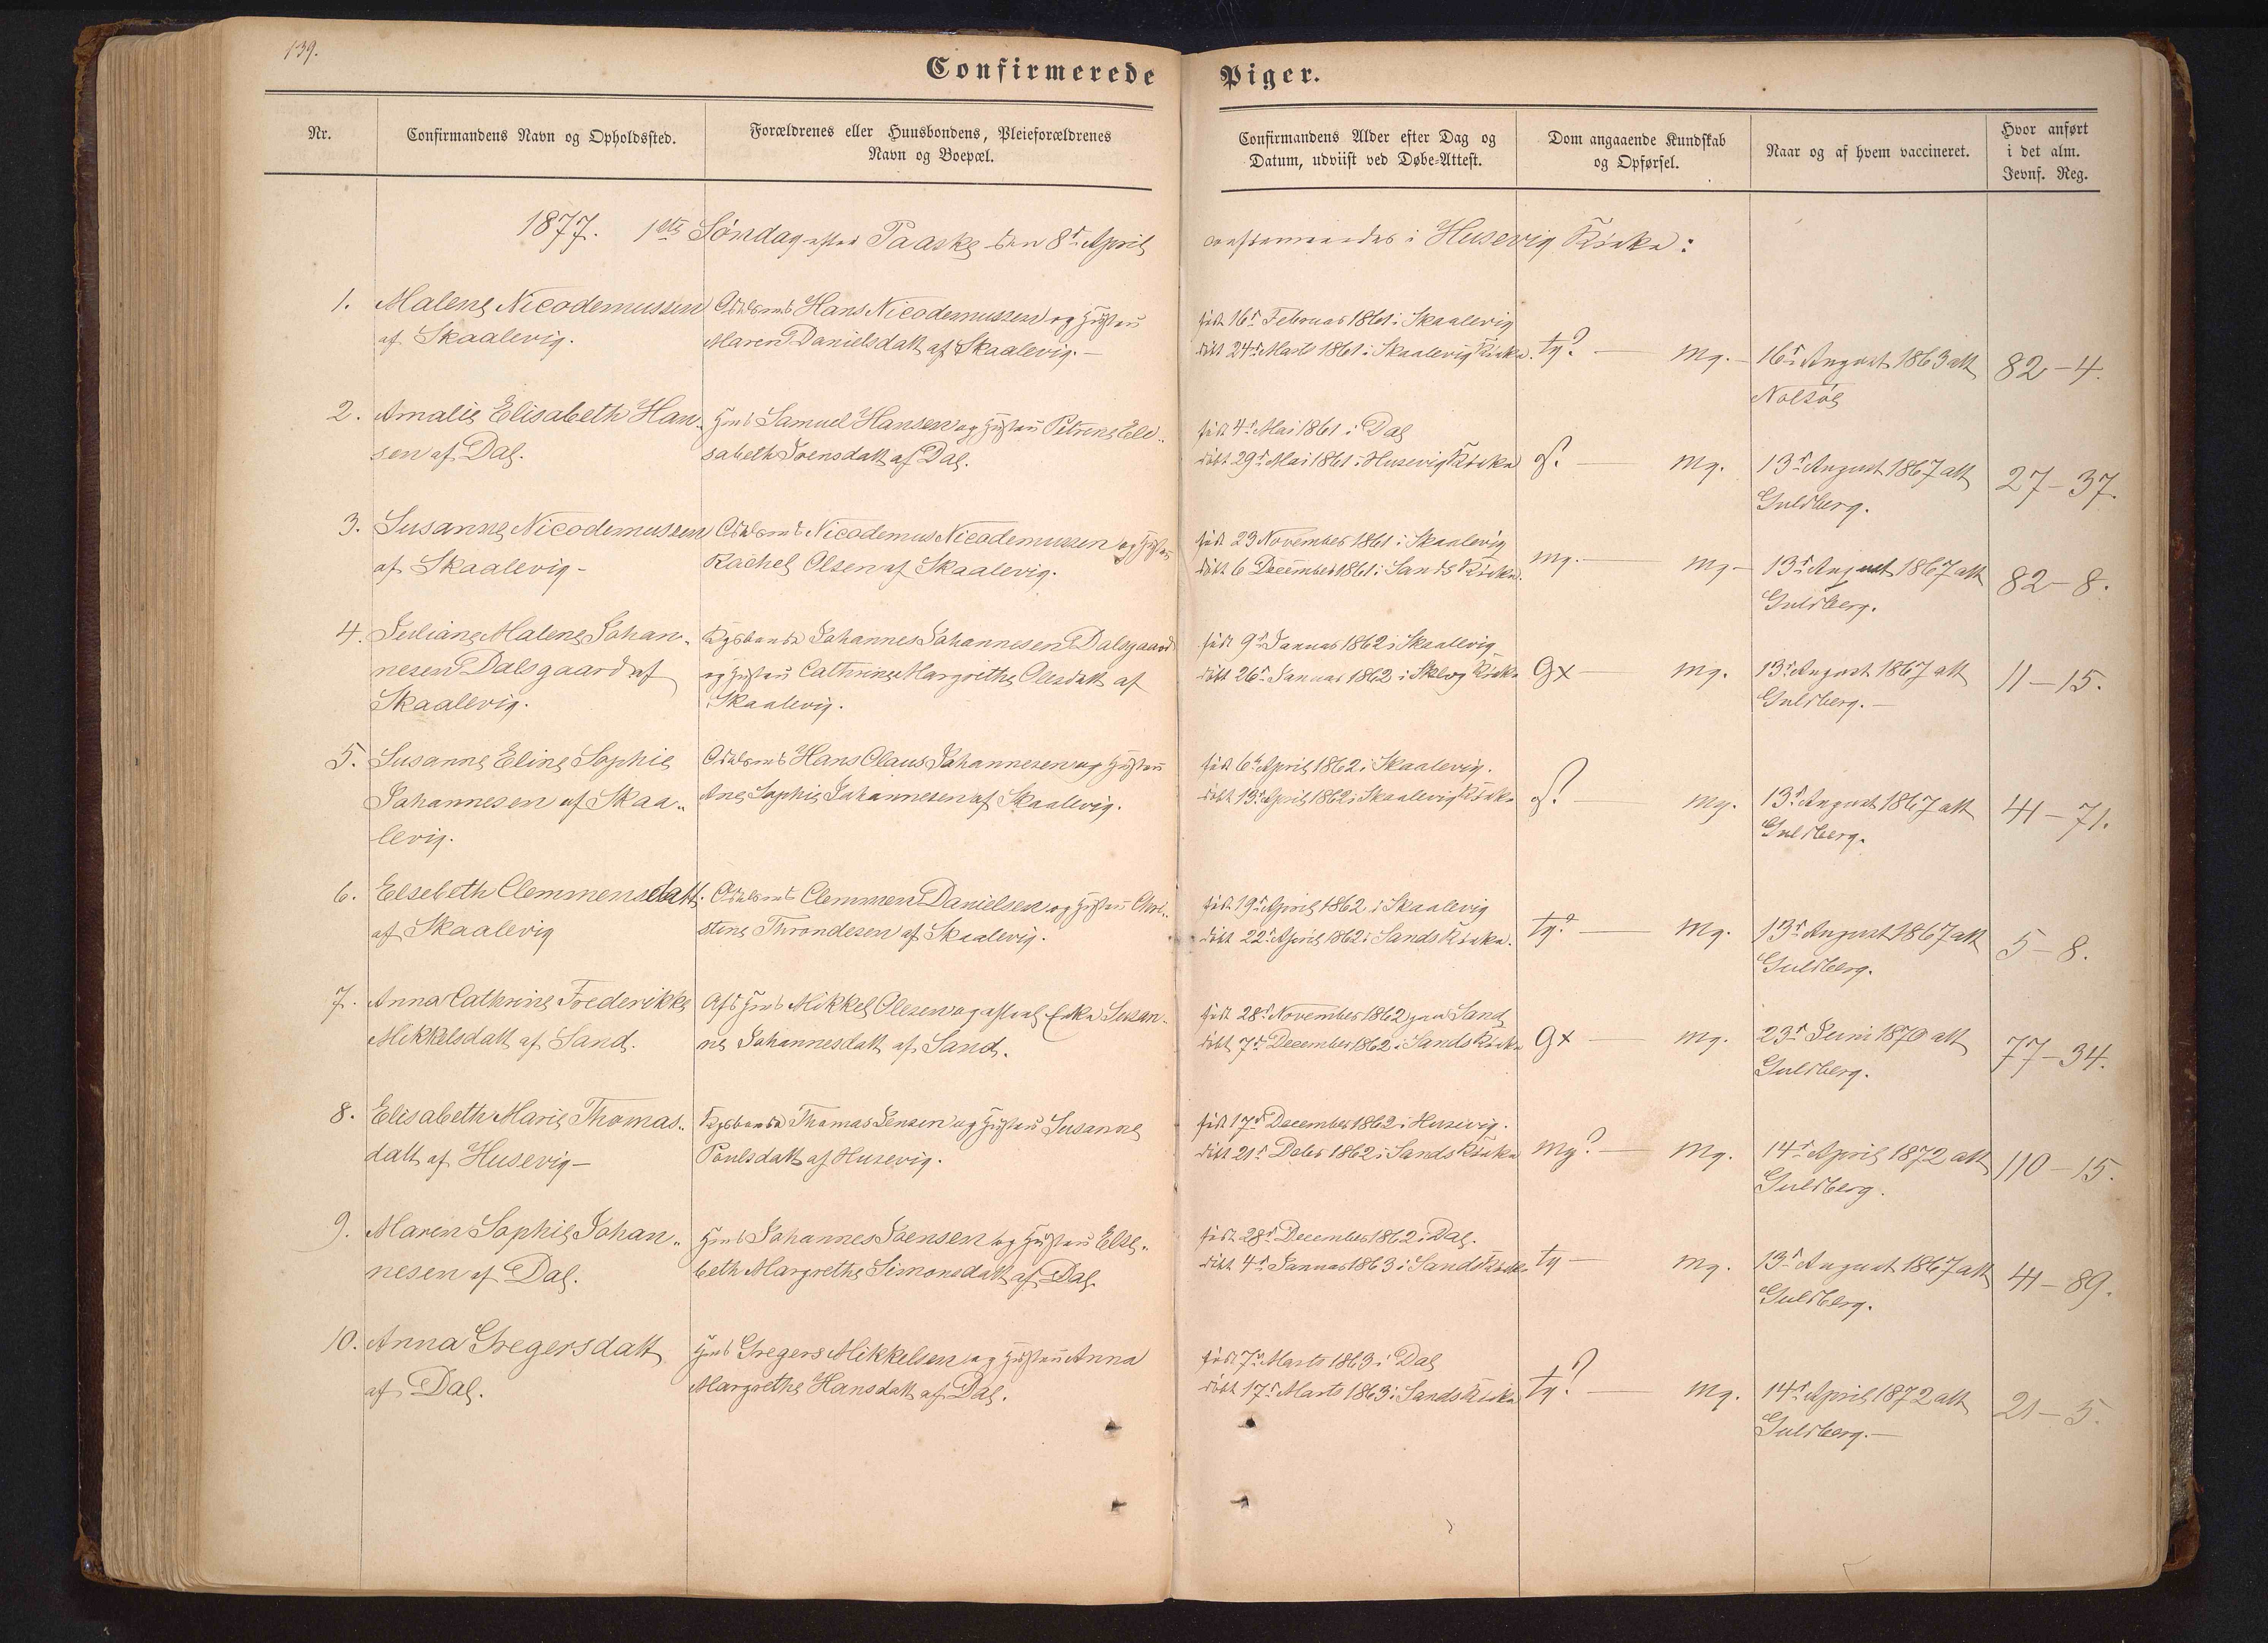 139.
Confirmerede Piger.
Nr.
Confirmandens Navn og Opholdssted.
Forældrenes eller Huusbondens, Pleieforældrenes
Navn og Boepæl.
Confirmandens Alder efter Dag og
Datum, udviist ved Døbe-Attest.
Dom angaaende Kundskab
og Opførsel.
Naar og af hvem vaccineret.
Hvor anført
i det alm.
Jevnf. Reg.
1877. 1ste Søndag efter Paaske den 8d April confirmeredes i Husevig Kirke:
1. Malene Nicodemussen
af Skaalevig.
Hans Nicodemussen og Hustru
Maren Danielsdatt af Skaalevig.-
født 16d Februar 1861 i Skaalevig
døbt 24d Marts 1861 i Skaalevig Kirke.
tg? — mg.-
16d August 1863 att
Nolsöe
82-4.
2. Amalie Elisabeth Han-
sen af Dal.
Hmd Samuel Hansen og Hustru Petrine Eli-
sabeth Joensdatt af Dal.
født 4d Mai 1861 i Dal
døbt 29d Mai 1861 i Husevig Kirke
g? — mg.
13d August 1867 att
Guldberg.
27-37.
3. Susanne Nicodemussen
af Skaalevig-
Nicodemus Nicodemussen og Hustru
Rachel Olsen af Skaalevig.
født 23 November 1861 i Skaalevig
døbt 6 December 1861 i Sands Kirke.
mg. — mg-
13d August 1867 att
Guldberg.
82-8.
4. Juliane Malene Johan-
nesen Dalsgaard af
Skaalevig.
Johannes Johannesen Dalsgaard
og Hustru Cathrine Margrethe Olesdatt af
Skaalevig.
født 9d Januar 1862 i Skaalevig
døbt 26d Januar 1862 i Kirke
gx — mg.
13d August 1867 att
Guldberg.-
11-15.
5. Susanne Eline Sophie
Johannesen af Skaa-
levig.
Hans Olaus Johannesen og Hustru
Ane Sophie Johannesen af Skaalevig.
født 6d April 1862 i Skaalevig.
døbt 13d April 1862 i Skaalevig Kirke
g? — mg.
13d August 1867 att
Guldberg.
41-71.
6. Elsebeth Clemmensdatt
af Skaalevig
Clemmen Danielsen og Hustru Chri-
stine Throndesen af Skaalevig.
født 19d April 1862 i Skaalevig
døbt 22d April 1862 i Sands Kirke.
tg? — mg.
13d August 1867 att
Guldberg.
5-8.
7. Anna Cathrine Frederikke
Mikkelsdatt af Sand.
Afd Hmd Mikkel Olesen og Enke Susan-
ne Johannesdatt af Sand.
født 28d November 1862 paa Sand
døbt 7d December 1862 i Sands Kirke
gx — mg.
23d Juni 1870 att
Guldberg.
77-34.
8. Elisabeth Marie Thomas-
datt af Husevig-
Thomas Jensen og Hustru Susanne
Poulsdatt af Husevig.
født 17d December 1862 i Husevig.
døbt 21d Decbr 1862 i Sands Kirke
mg? — mg.
14d April 1872 att
Guldberg.
110-15.
9. Maren Sophie Johan-
nesen af Dal.
Hmd Johannes Joensen og Hustru Else-
beth Margrethe Simonsdatt af Dal.
født 28d December 1862 i Dal.
døbt 4d Januar 1863 i Sands Kirke
tg — mg.
13d August 1867 att
Guldberg.
41-89.
10. Anna Gregersdatt
af Dal.
Hmd Gregers Mikkelsen og Hustru Anna
Margrethe Hansdatt af Dal.
født 7d Marts 1863 i Dal
døbt 17d Marts 1863 i Sands Kirke
tg? — mg.
14d April 1872 att
Guldberg.-
21-5.